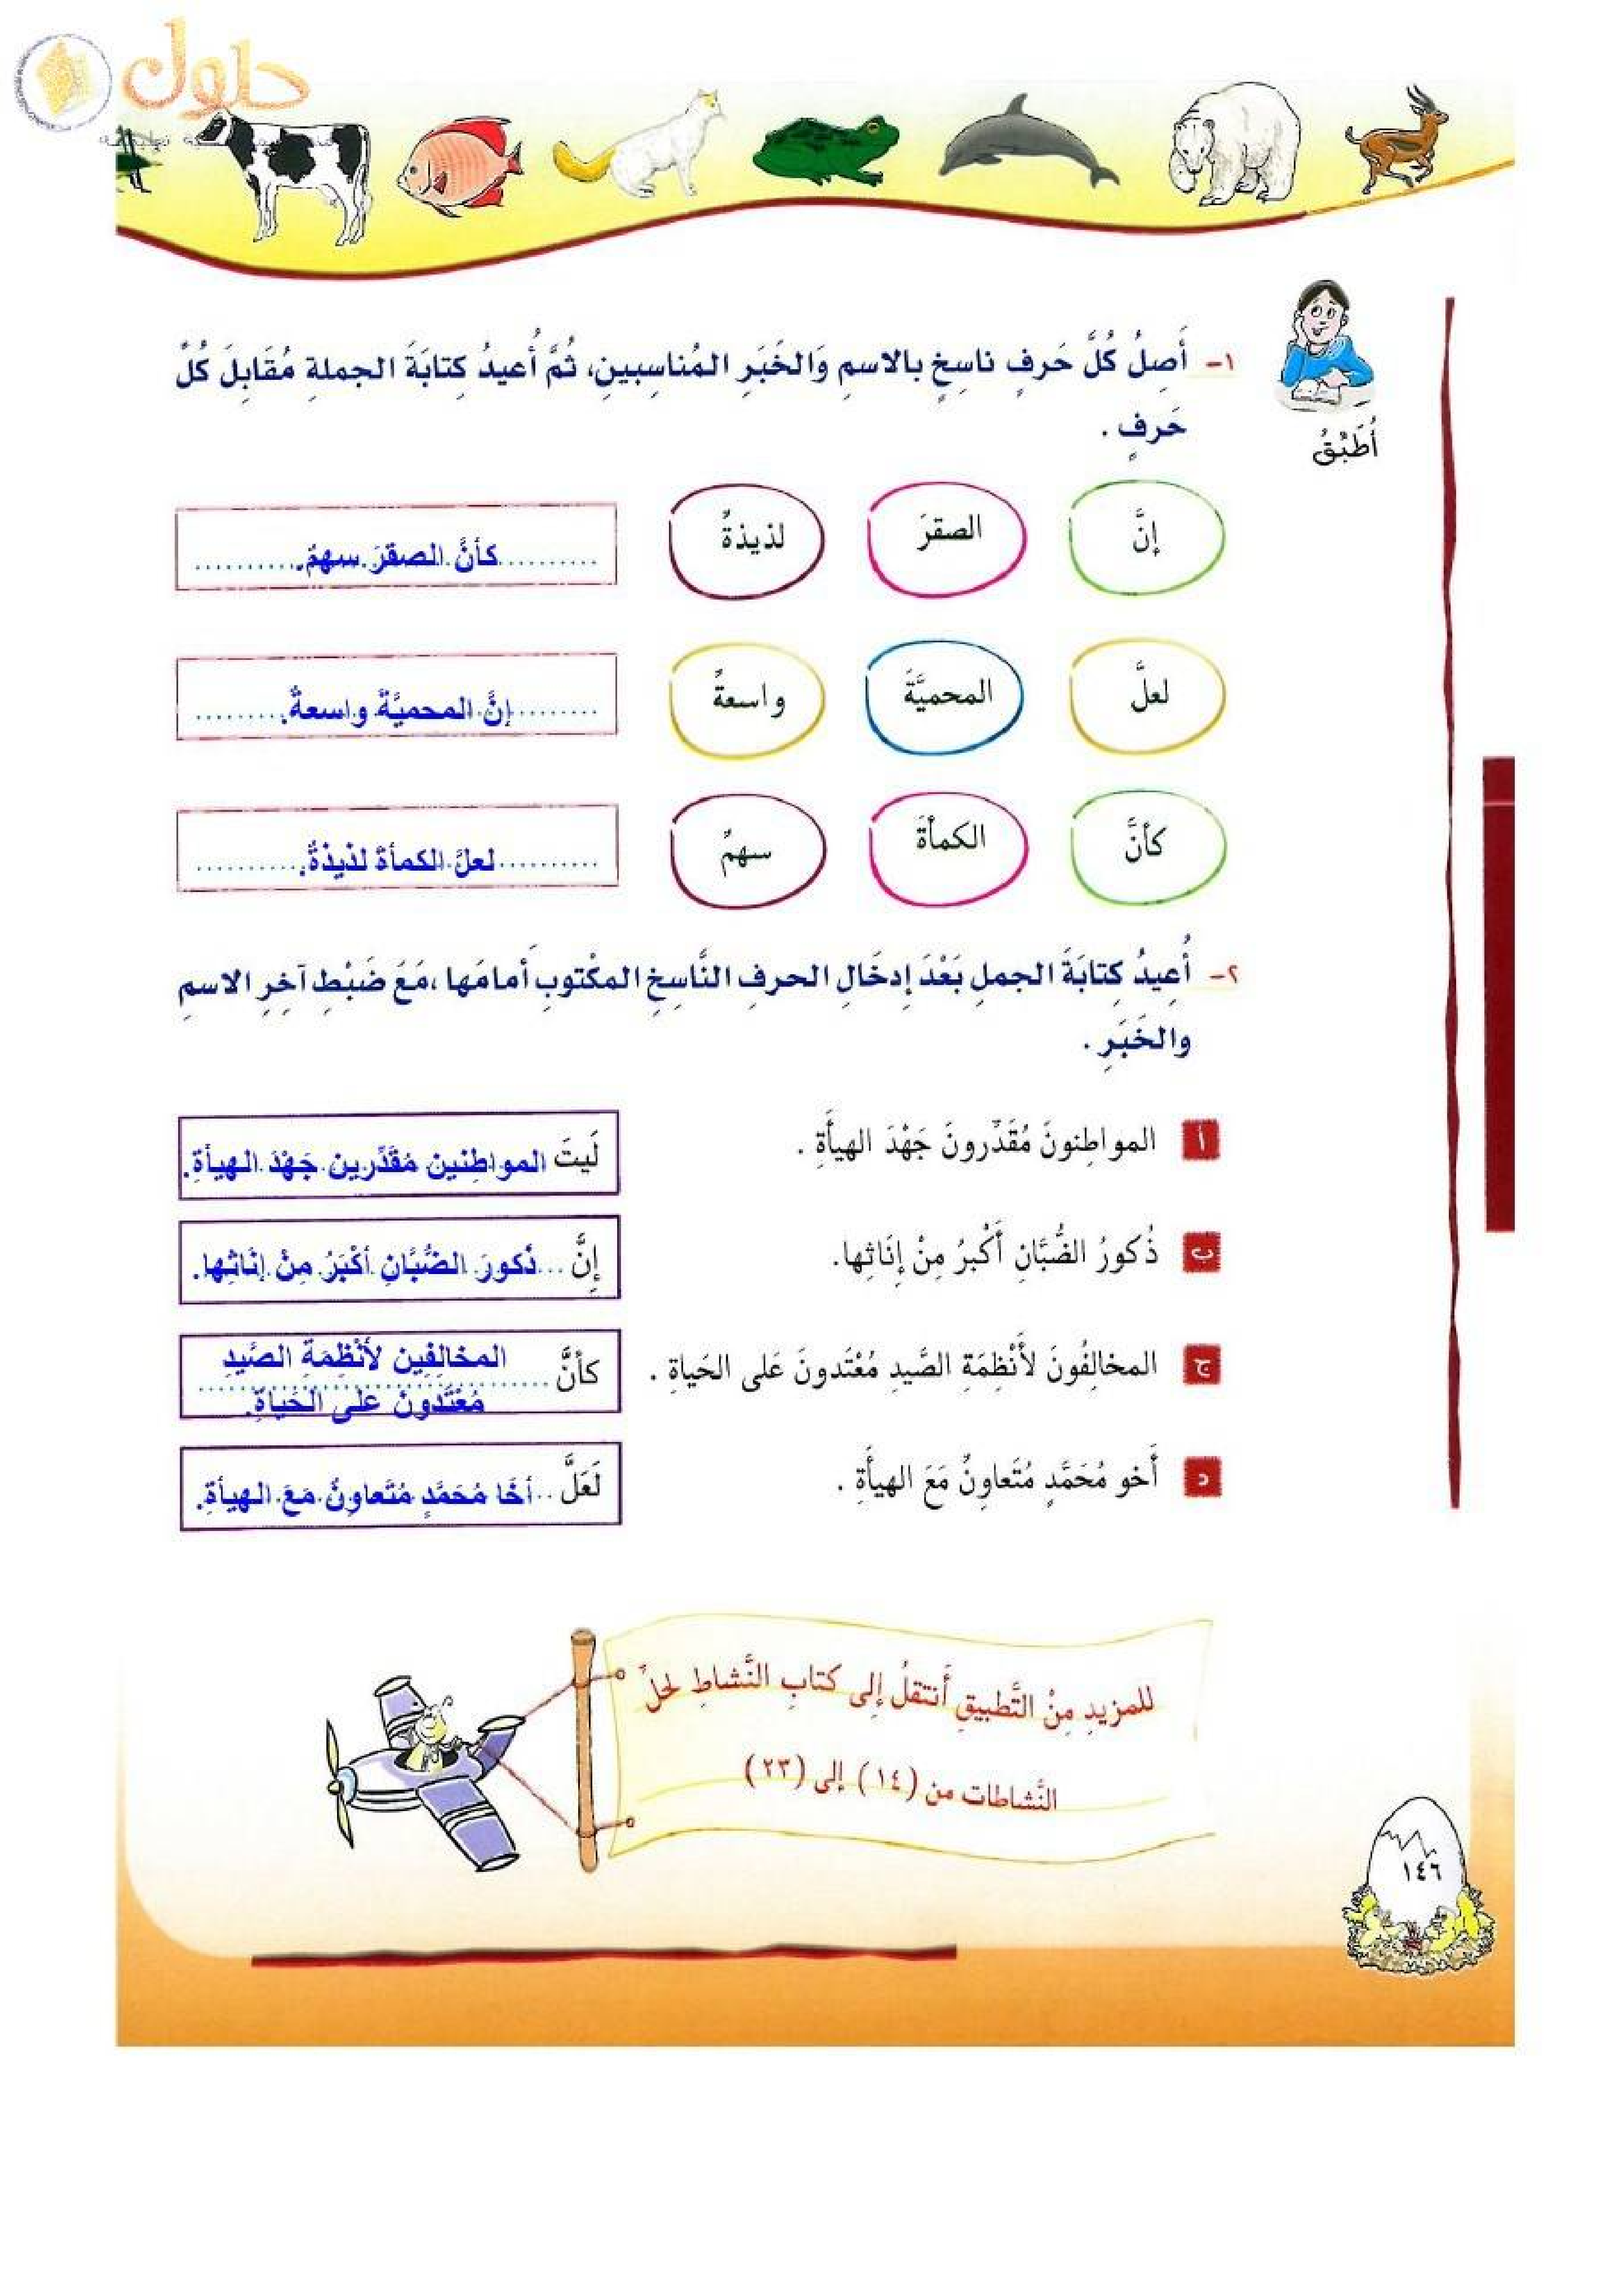 حلول
١- أَصِلُ كُلَّ حَرفٍ ناسِخٍ بالاسمِ وَالخَبَرِ المُناسِبينِ، ثُمَّ أُعيدُ كِتابَةَ الجملةِ مُقَابِلَ كُلِّ
حَرفٍ .
أُطَبِّقُ
إنَّ الصقرَ لذيذةٌ كأنَّ الصقرَ سهمٌ.
لعلَّ المحميَّةَ واسعةٌ إنَّ المحميَّةَ واسعةٌ.
كأنَّ الكمأةَ سهمٌ لعلَّ الكمأةَ لذيذةٌ.
٢- أُعِيدُ كِتابَةَ الجملِ بَعْدَ إدخَالِ الحرفِ النَّاسِخِ المكْتوبِ أمامَها ،مَعَ ضَبْطِ آخِرِ الاسمِ
والخَبَرِ .
أ المواطِنونَ مُقَدِّرونَ جَهْدَ الهيأَةِ . لَيتَ المواطِنين مُقَدِّرين جَهْدَ الهيأةِ.
ب ذُكورُ الضُّبَّانِ أَكْبرُ مِنْ إنَاثِها. إنَّ ذُكورَ الضُّبَّانِ أكْبَرُ مِنْ إنَاثِها.
ج المخالِفُونَ لأَنْظِمَةِ الصَّيدِ مُعْتَدونَ عَلى الحَياةِ . كأنَّ المخالِفِين لأنْظِمَةِ الصَّيدِ
مُعْتَدونَ عَلى الحَياةِ.
د أَخو مُحَمَّدٍ مُتَعاوِنٌ مَعَ الهيأَةِ . لَعَلَّ أخَا مُحَمَّدٍ مُتَعاوِنٌ مَعَ الهيأةِ.
للمزيدِ مِنْ التَّطبيقِ أَنتقلُ إلى كتابِ النَّشاطِ لحلِّ
النَّشاطات من (١٤) إلى (٢٣)
١٤٦